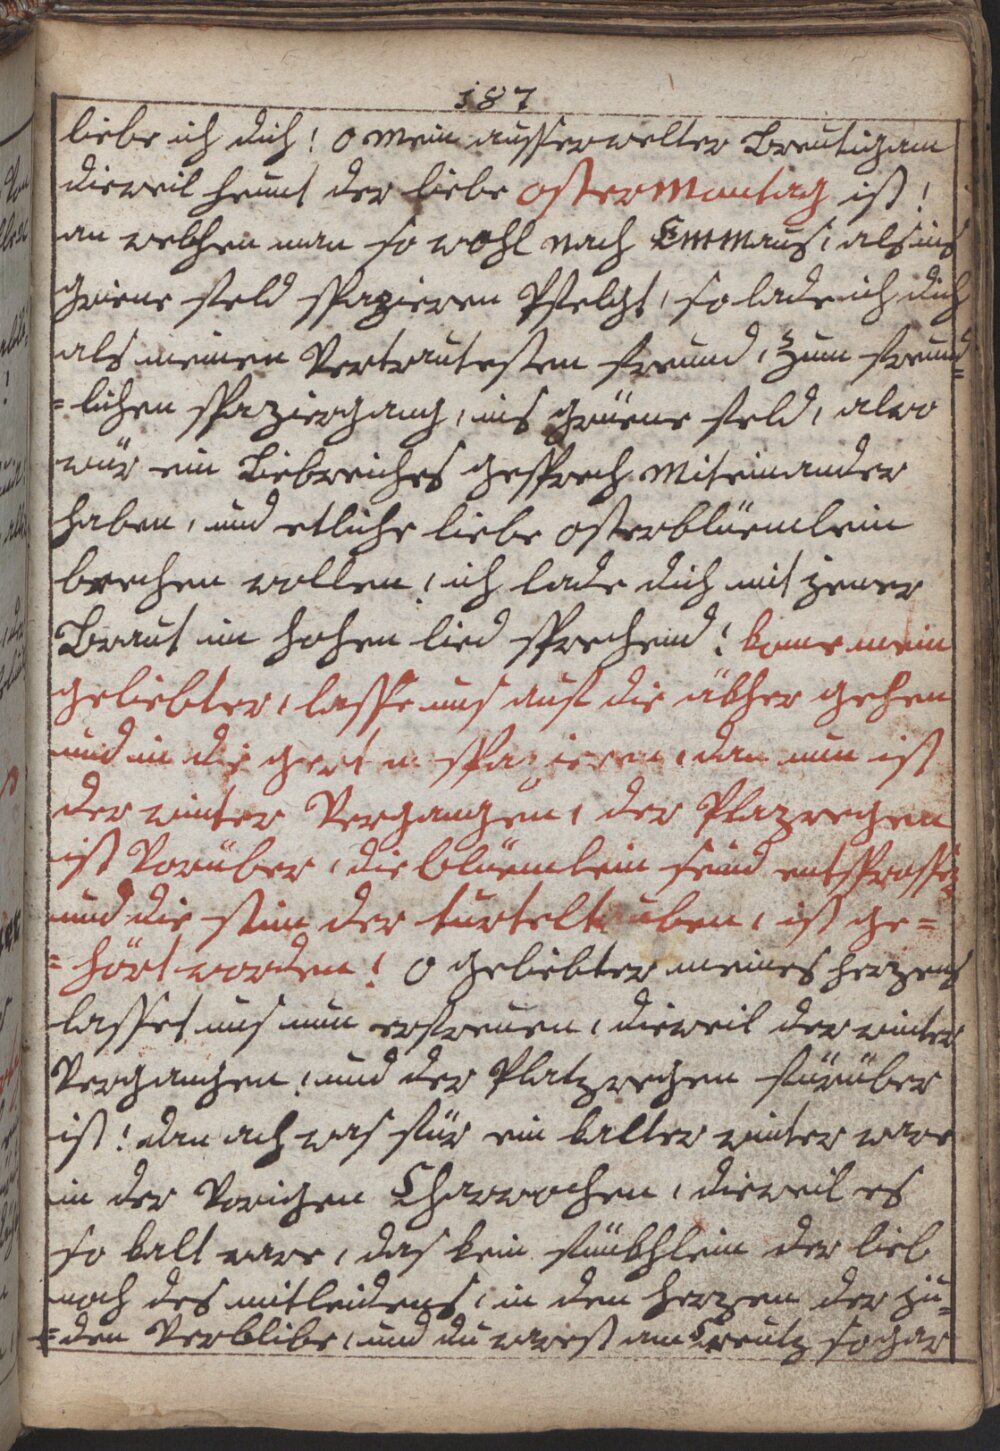 187
liebe ich dich! O mein ausserwelter Breutigam
dieweil heunt der liebe ostermontag ist!
an welchen man so wohl nach Emmaus, als ins
griene feld spazieren pflegt, so lade ich dich
als meinen vertrautesten freund, zum freund=
=lichen spaziergang, ins grüene feld, alwo
wür ein Liebreiches gesprech miteinander
haben, und etliche liebe osterblüemlein
brechen wollen, ich lade dich mit jener
Braut im hohen lied sprechend! kome mein
geliebter, lasse uns auf die äkher gehen
und in die gerten spazieren, dan nun ist
der winter vergangen, der Plazregen
ist vorüber, die blüemlein seind entsprossen
und die stim der turteltauben, ist ge=
=hört worden! O geliebter meines herzens
lasset uns nun erfreuen, dieweil der winter
vergangen, und der Platzregen fürüber
ist! dan ach was für ein kalter winter ware
in der vorigen Charwochen, dieweil es
so kalt ware, das kein fünkhlein der lieb
noch des mitleidens, in den herzen der ju=
=den verblibe, und du warest am Creutz sogar